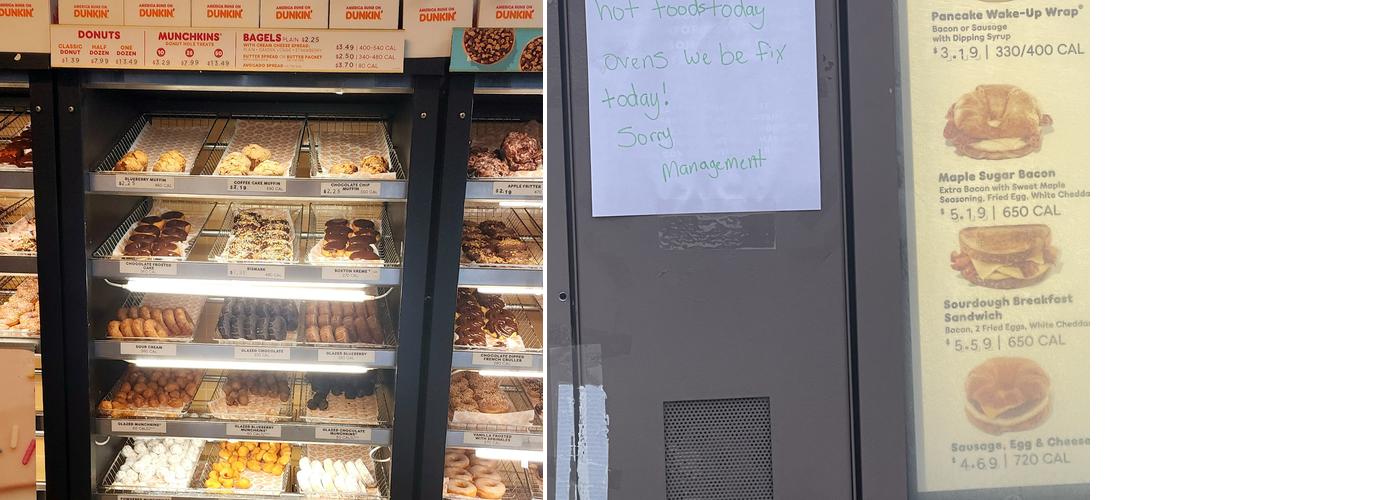 AMERICA RUNS ON DUNKIN'
AMERICA RUNS ON DUNKIN'
AMERICA RUNS ON DUNKIN'
AMERICA RUNS ON DUNKIN'
AMERICA RUNS ON DUNKIN'
DONUTS
CLASSIC DONUT HALF DOZEN ONE DOZEN
$1.39 $7.99 $13.49
MUNCHKINS®
DONUT HOLE TREATS
10 25 50
$3.29 $7.99 $13.49
BAGELS PLAIN $2.25
WITH CREAM CHEESE SPREAD: $3.49 | 400-540 CAL
BUTTER SPREAD OR BUTTER PACKET $2.50 | 340-480 CAL
AVOCADO SPREAD $3.70 | 80 CAL
BLUEBERRY MUFFIN
$2.25
COFFEE CAKE MUFFIN
$2.19
CHOCOLATE CHIP MUFFIN
$2.25
APPLE FRITTER
$2.19
CHOCOLATE FROSTED CAKE
BISMARK
BOSTON KREME®
SOUR CREAM
GLAZED CHOCOLATE
GLAZED BLUEBERRY
CHOCOLATE DIPPED FRENCH CRULLER
GLAZED MUNCHKINS®
GLAZED BLUEBERRY MUNCHKINS®
GLAZED CHOCOLATE MUNCHKINS®
VANILLA FROSTED WITH SPRINKLES
hot foods today
ovens we be fix
today!
Sorry
Management
Pancake Wake-Up Wrap®
Bacon or Sausage
with Dipping Syrup
$3.19 | 330/400 CAL
Maple Sugar Bacon
Extra Bacon with Sweet Maple
Seasoning, Fried Egg, White Cheddar
$5.19 | 650 CAL
Sourdough Breakfast
Sandwich
Bacon, 2 Fried Eggs, White Cheddar
$5.59 | 650 CAL
Sausage, Egg & Cheese
$4.69 | 720 CAL